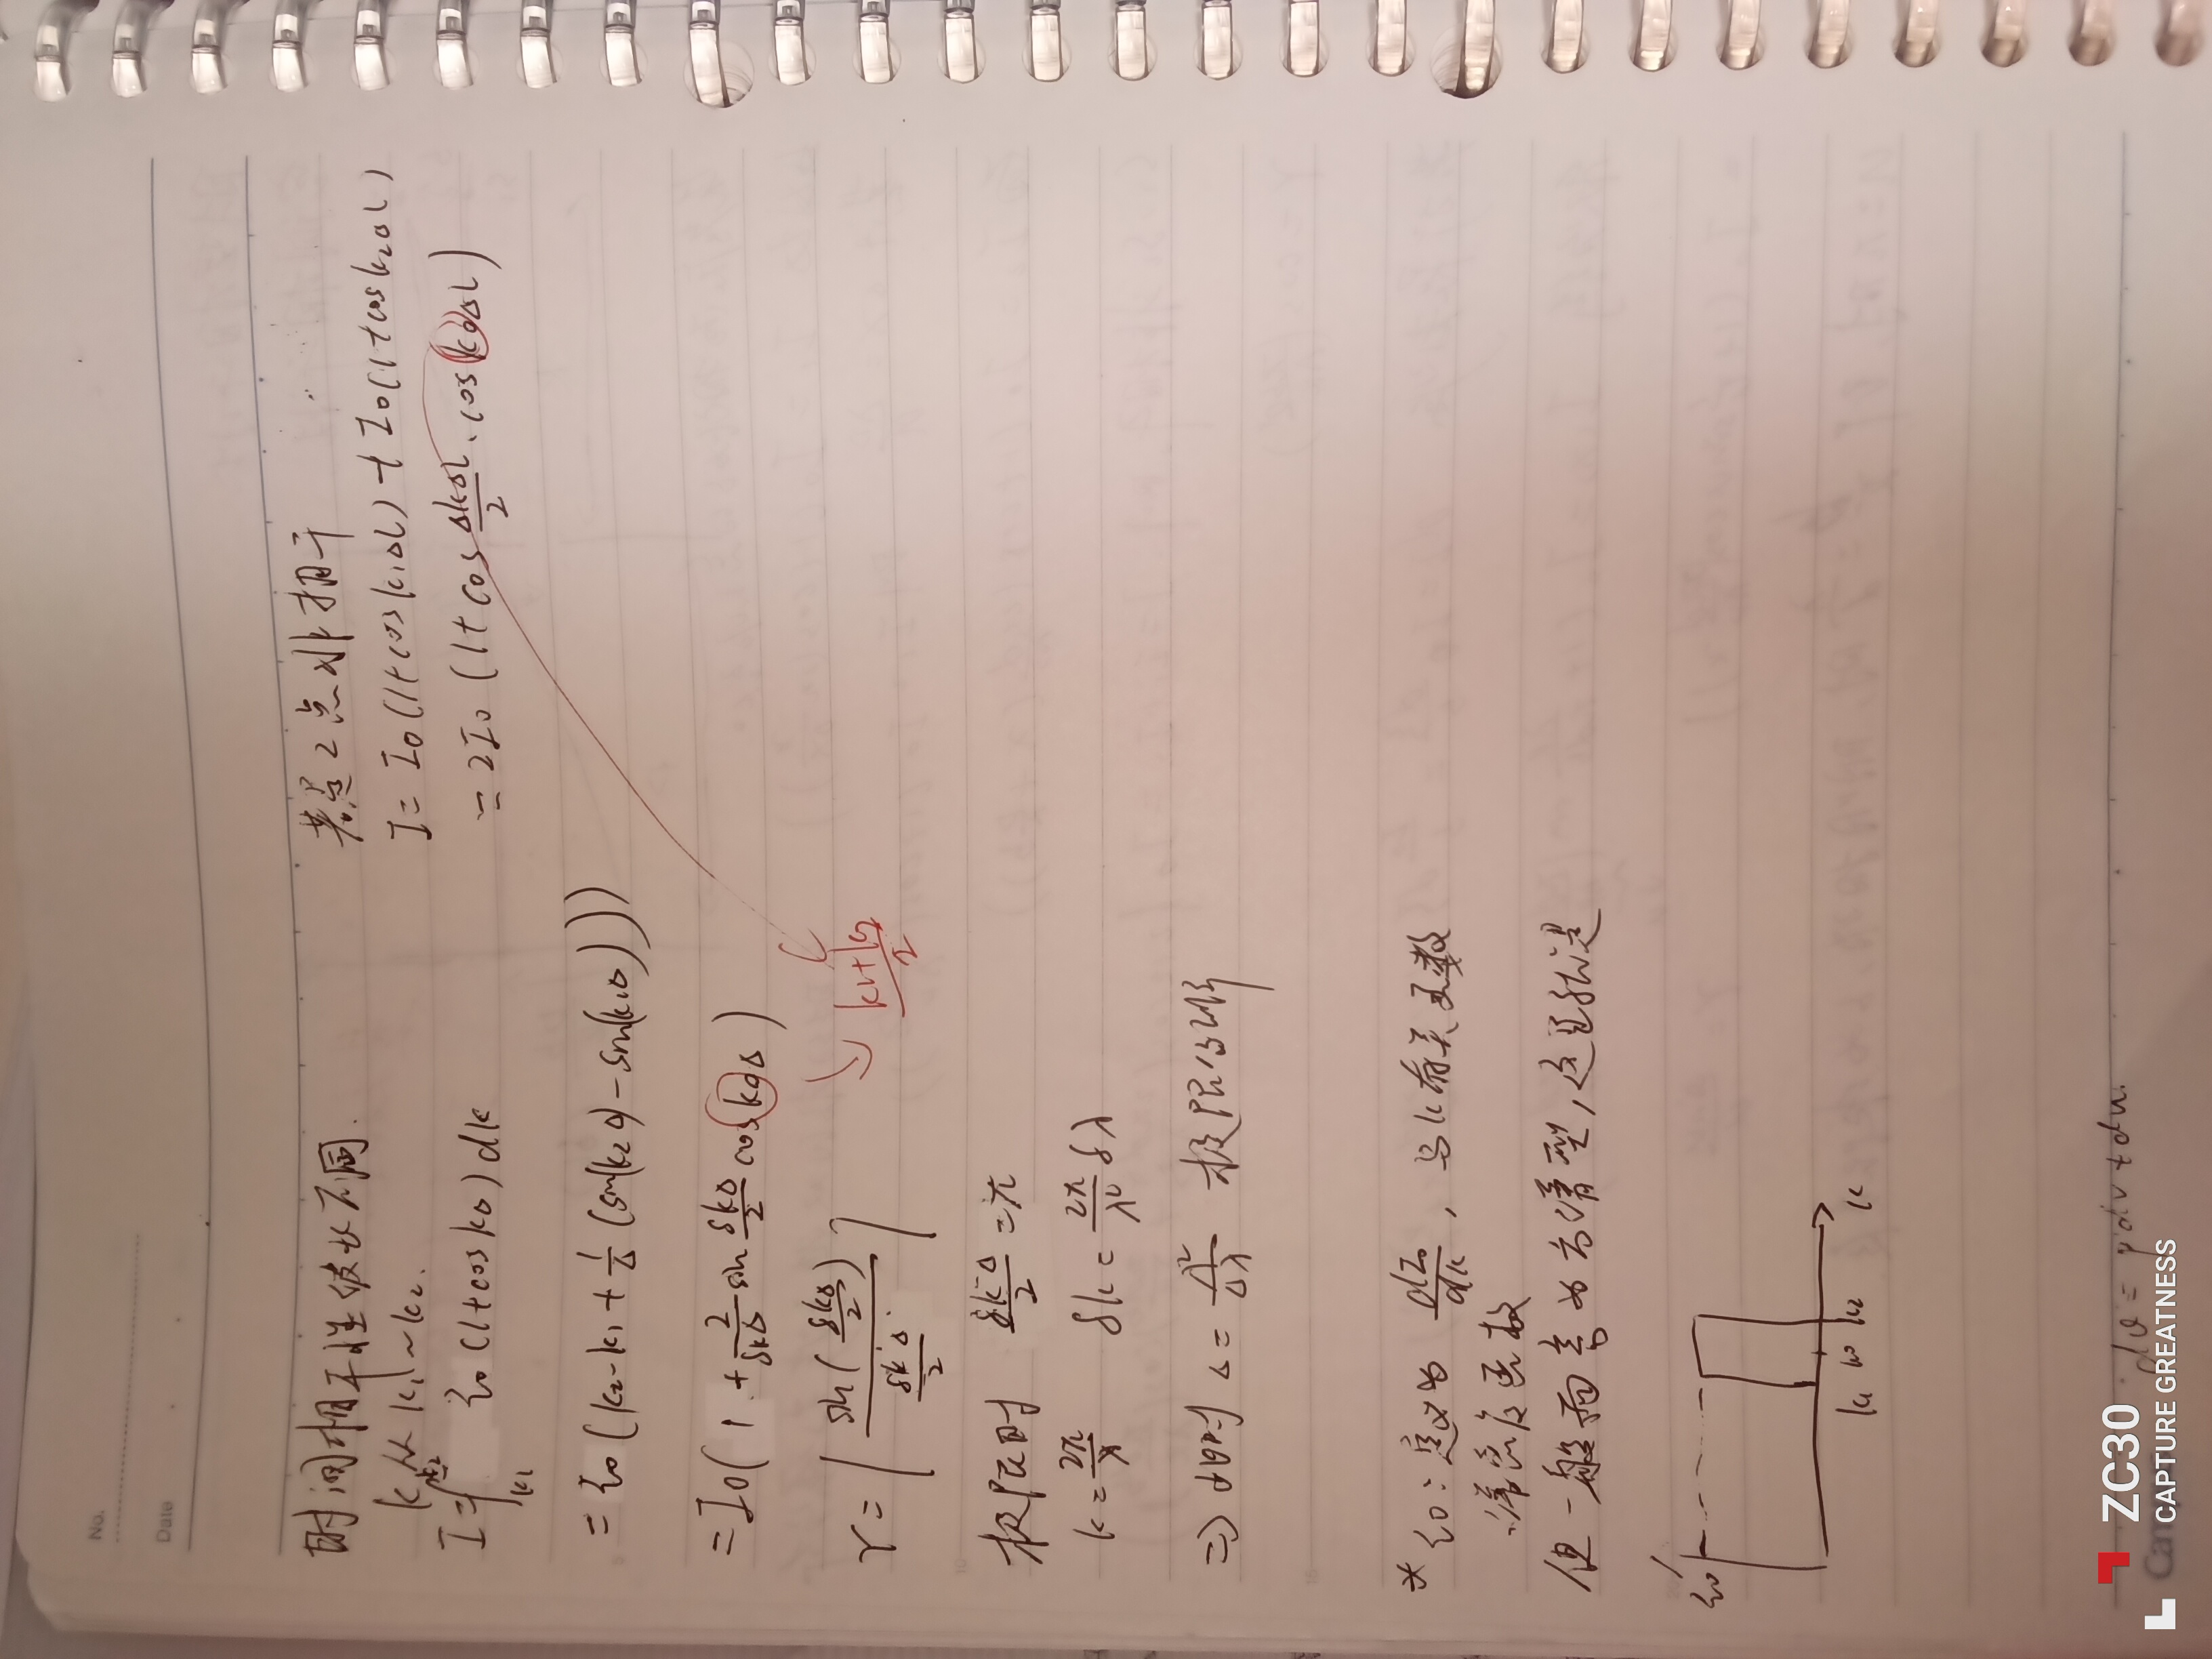 No.
Date
时间相干性 波长不同.
k从 k₁~k₂.
I = ∫_{k₁}^{k₂} ξ₀ (1+cos kΔ) dk
= ξ₀ (k₂-k₁ + 1/Δ (sin(k₂Δ) - sin(k₁Δ)))
= I₀ (1 + 2/δkΔ sin δkΔ/2 cos k₀Δ)
γ = | sin(δkΔ/2) / (δkΔ/2) |
k₁+k₂/2
极限时 δkΔ/2 = π
k = 2π/λ δk = 2π/λ² δλ
=) Δ = λ²/Δλ 极限公式
考虑2点非相干
I = I₀(1+cos k₁ΔL) + I₀(1+cos k₂ΔL)
= 2I₀ (1+cos ΔkΔL/2 · cos k₀ΔL)
* ξ₀: 定义为 dI₀/dk, 与k有关函数
谱密度函数
但一般而言为方谱型, 这里就是
ξ₀
k₁ k₀ k₂ k
ZC30
CAPTURE GREATNESS